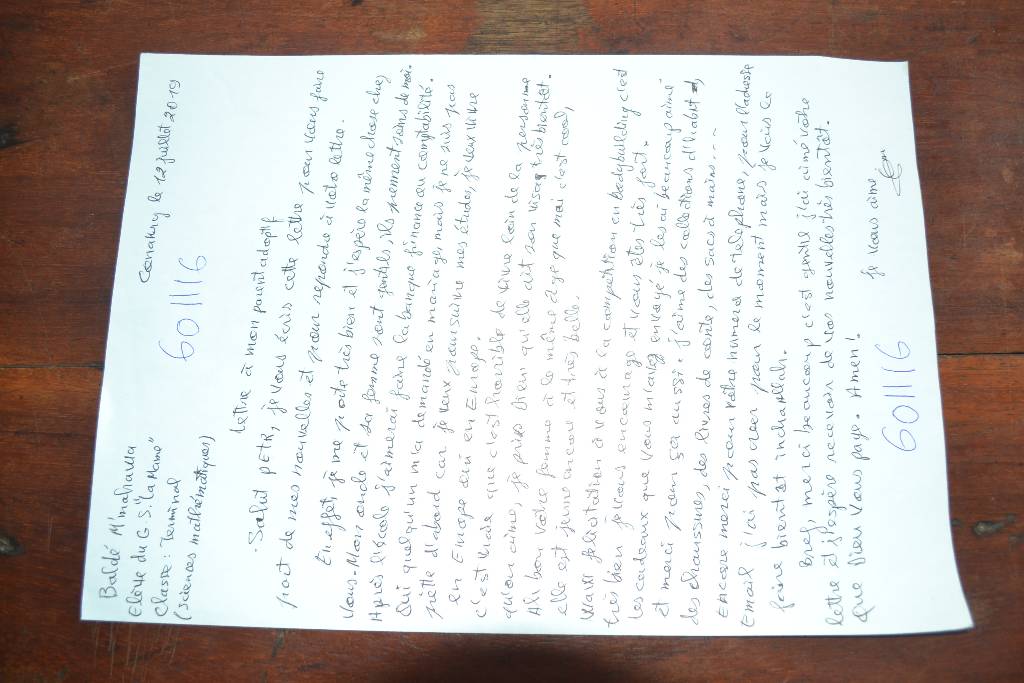 Baldé M'mahawa
Elève du G.S. "la Maine"
Classe: Terminal
(Sciences mathématiques)
Conakry le 12 juillet 2019
601116
Lettre à mon parent adoptif
- Salut PETR, je vous écris cette lettre pour vous faire
part de mes nouvelles et pour repondre à votre lettre.
En effet, je me porte très bien et j'espère la même chose chez
vous. Mon oncle et sa femme sont gentils, ils prennent soins de moi.
Après l'école j'aimerai faire la banque finance ou comptabilité.
Oui quelqu'un m'a demandé en mariage mais je ne suis pas
prête d'abord car je veux poursuivre mes études, je veux vivre
en Europe oui en Europe.
c'est vrai que c'est horrible de vivre loin de la personne
qu'on aime, je prie Dieu qu'elle ait son visa très bientôt.
Ah bon votre femme a le même âge que moi c'est cool,
elle est jeune encore et très belle.
Waw félicitation à vous à la compétition en Bodybuilding c'est
très bien je vous encourage et vous êtes très fort.
Les cadeaux que vous m'avez envoyé je les ai beaucoup aimé
et merci pour ça aussi. j'aime des collections d'habits,
des chaussures, des livres de conte, des sacs à mains...
Encore merci pour votre numero de telephone, pour l'adresse
Email j'ai pas creer pour le moment mais je vais le
faire bientôt inchallah.
Bref, merci beaucoup c'est gentil j'ai aimé votre
lettre et j'espère recevoir de vos nouvelles très bientôt.
Que Dieu vous paye. Amen!
Je vous aime
601116